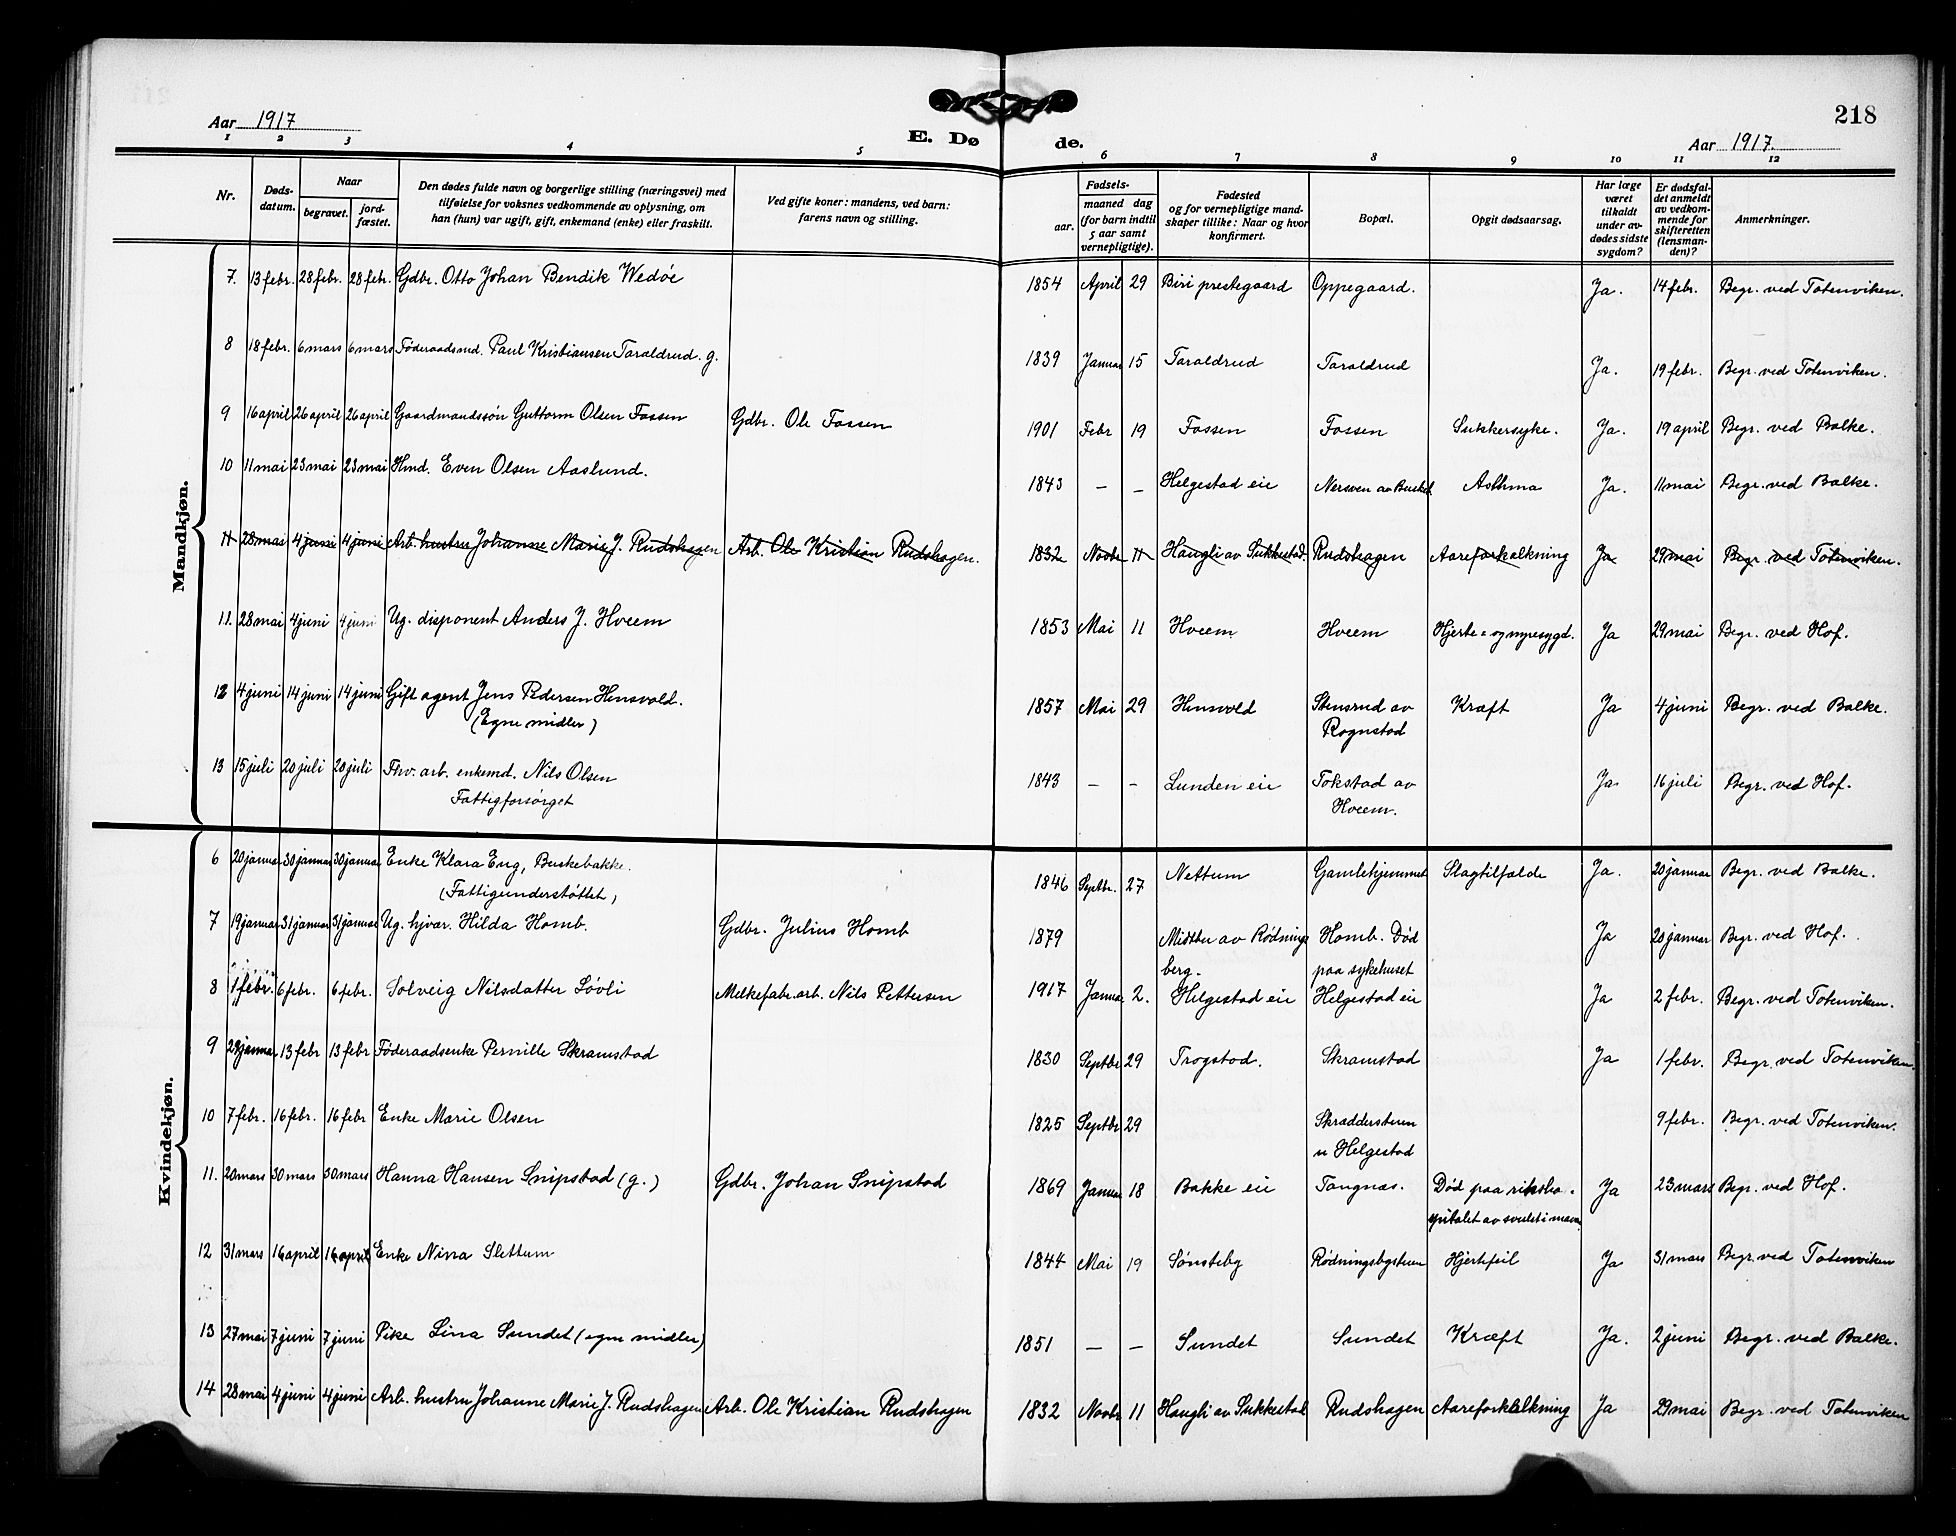 218
Aar 1917
E. Døde.
Aar 1917
1 2 3 4 5 6 7 8 9 10 11 12
Nr.
Døds-
datum.
Naar
begravet.
jord-
fæstet.
Den dødes fulde navn og borgerlige stilling (næringsvei) med
tilføielse for voksnes vedkommende av oplysning, om
han (hun) var ugift, gift, enkemand (enke) eller fraskilt.
Ved gifte koner: mandens, ved barn:
farens navn og stilling.
Fødsels-
aar.
maaned dag
(for barn indtil
5 aar samt
vernepligtige).
Fødested
og for vernepligtige mand-
skaper tillike: Naar og hvor
konfirmert.
Bopæl.
Opgit dødsaarsag.
Har læge
været
tilkaldt
under av-
dødes sidste
sygdom?
Er dødsfal-
det anmeldt
av vedkom-
mende for
skifteretten
(lensman-
den)?
Anmerkninger.
Mandkjøn.
7. 13 febr. 28 febr. 28 febr. Gdbr. Otto Johan Bendik Wedøe 1854 April 29 Biri prestegaard Oppegaard. Ja. 14 febr. Begr. ved Totenviken.
8 18 febr. 6 mars 6 mars Føderaadsmd. Paul Kristiansen Taraldrud. g. 1839 Januar 15 Taraldrud Taraldrud Ja. 19 febr. Begr. ved Totenviken.
9 16 april 26 april 26 april Gaardmandssøn Guttorm Olsen Fossen Gdbr. Ole Fossen 1901 Febr 19 Fossen Fossen Sukkersyke. Ja. 19 april Begr. ved Balke.
10 11 mai 23 mai 23 mai Hmd. Even Olsen Aaslund. 1843 – – Helgestad eie Nersven av Ja. 11 mai Begr. ved Balke. Asthma
11 28 mai 4 juni 4 juni Arb. hustru Johanne Marie J. Rudshagen Arb. Ole Kristian Rudshagen. 1832 Novbr 11 Haugli av Sukkestad. Rudshagen Aareforkalkning Ja 29 mai Begr. ved Totenviken.
11. 28 mai 4 juni 4 juni Ug. disponent Anders J. Hveem 1853 Mai 11 Hveem Hveem Hjerte- og nyresygd. Ja 29 mai Begr. ved Hof.
12 4 juni 14 juni 14 juni Gift agent Jens Pedersen Hensvold. 1857 Mai 29 Hensvold Stensrud av Kræft Ja 4 juni Begr. ved Balke.
(Egne midler) Rognstad
13 15 juli 20 juli 20 juli Fhv. arb. enkemd. Nils Olsen 1843 – – Lunden eie Tokstad av Ja 16 juli Begr. ved Hof.
Fattigforsørget Hveem.
Kvindekjøn.
6 20 januar 30 januar 30 januar Enke Klara Eng, Buskebakke. 1846 Septbr. 27 Nettum Gamlehjemmet Slagtilfælde Ja. 20 januar Begr. ved Balke.
(Fattigunderstøttet)
7 19 januar 31 januar 31 januar Ug. hjvær. Hilda Homb. Gdbr. Julius Homb 1879 Midtbø av Rødnings Homb. Død Ja 20 januar Begr. ved Hof.
berg. paa sykehuset
8 1 febr. 6 febr. 6 febr. Solveig Nilsdatter Løvli Melkefabr. arb. Nils Pettersen 1917 Januar 2. Helgestad eie Helgestad eie Ja 2 febr. Begr. ved Totenviken.
9 29 januar 13 febr 13 febr Føderaadsenke Pernille Skramstad 1830 Septbr 29 Trogstad. Skramstad Ja 1 febr. Begr. ved Totenviken.
10 7 febr. 16 febr. 16 febr Enke Marie Olsen 1825 Septbr 29 Skræddersteen 9 febr. Begr. ved Totenviken.
u Helgestad
11. 20 mars 30 mars 30 mars Hanna Hansen Snipstad (g.) Gdbr. Johan Snipstad 1869 Januar 18 Bakke eie Tangnæs. Død paa riksho- Ja 23 mars Begr. ved Hof.
spitalet av svulst i maven
12 31 mars 16 april 16 april Enke Nina Slettum 1844 Mai 19 Sønsteby Rødningsbysteen Hjertefeil Ja 31 mars Begr. ved Totenviken
13 27 mai 7 juni 7 juni Pike Lina Sundet (egne midler) 1851 – – Sundet Sundet Kræft Ja. 2 juni Begr. ved Balke.
14 28 mai 4 juni 4 juni Arb. hustru Johanne Marie J. Rudshagen Arb. Ole Kristian Rudshagen 1832 Novbr 11 Haugli av Sukkestad Rudshagen Aareforkalkning Ja 29 mai Begr. ved Totenviken